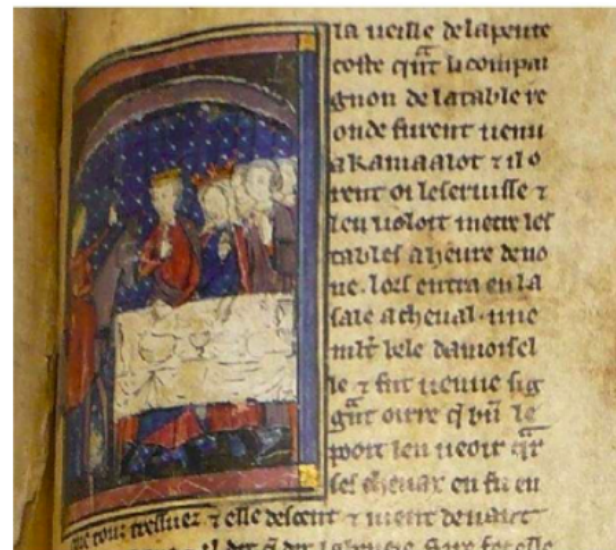 la ueille delapente
coste qͣnt li compai
gnon de la table re
onde furent uenu
a kamaalot ⁊ il o
rent oi le seruisse ⁊
len uoloit metre les
tables a heure de no
ne. lors entra en la
sale a cheual. une
mlt bele damoisel
le ⁊ fut uenue si g
gͣnt oirre q̃ bñ le
pooit len ueoir qͣr
ses cheuax en fu en
core touz tressuez ⁊ elle descent ⁊ uient deuant
il dit q̃